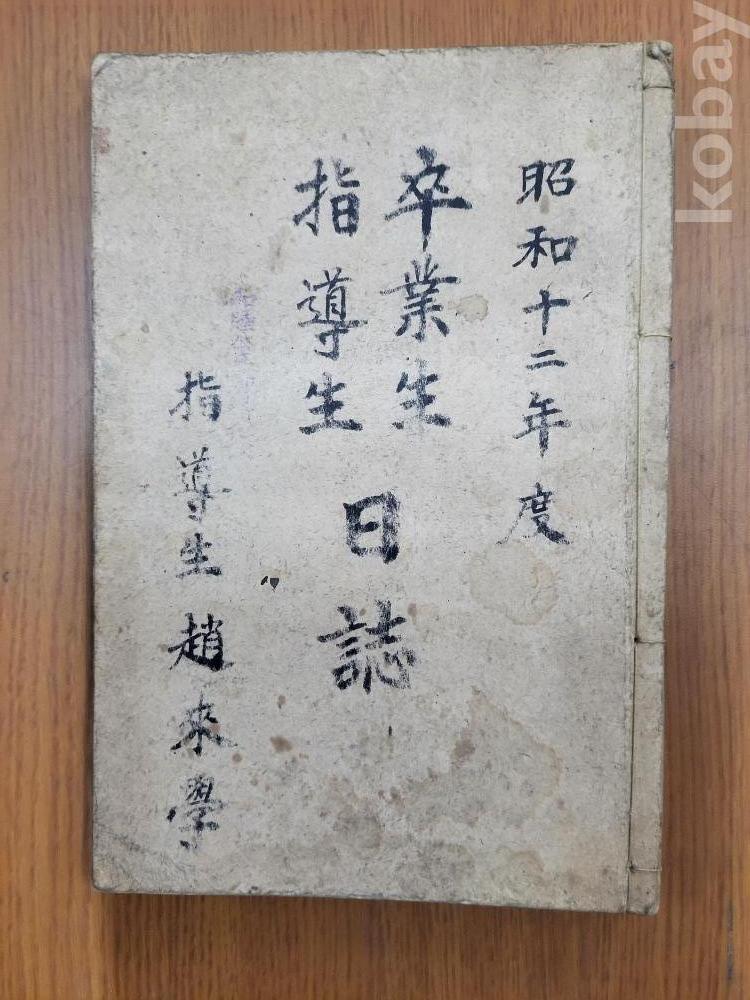 昭和十二年度
卒業生
指導生
日誌
指導生 趙來學
kobay